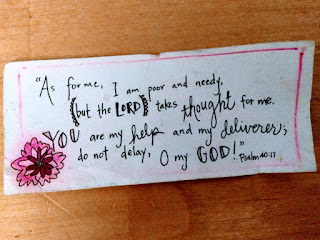 "As for me, I am poor and needy,
(but the LORD) takes thought for me.
YOU are my help and my deliverer;
do not delay, O my GOD!" Psalm 40:17